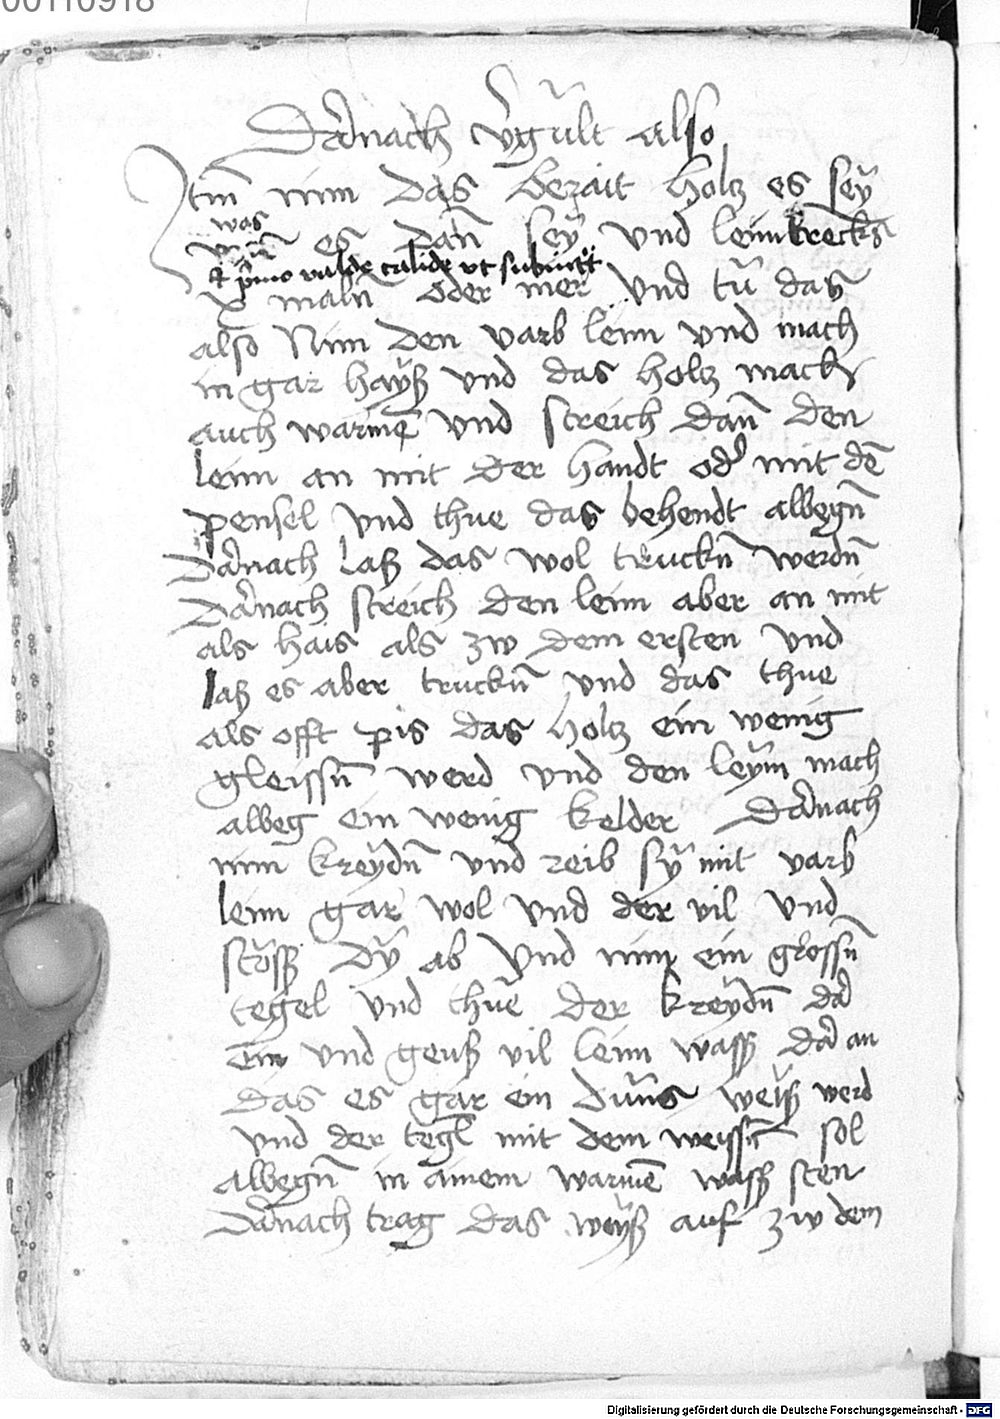 00110918
Darnach vˀgult also
Itm̄ nim das berait holtz es seӱ
was
es dan̄ seӱ vnd leimtrecks
et primo valde calide vt subintret
x maln̄ oder mer vnd tů das
also Nim den varb leim vnd mach
in gar haӱß vnd das holtz mach
auch warmē vnd streich dan̄ den
leim an mit der handt odˀ mit dē
pensel vnd thue das behendt albegn̄
Darnach laß das wol truckn̄ werdn̄
Darnach streich den leim aber an nit
als hais als zw dem ersten vnd
laß es aber truckn̄ vnd das thue
als offt pis das holtz ein wenig
gleissn̄ werd vnd den leӱm mach
albeg ein wenig kelder Darnach
nim kreӱdn̄ vnd reib sӱ mit varb
leim gar wol vnd der vil vnd
stӧß dӱ ab vnd nim ein grossn̄
tegel vnd thue der kreӱdn̄ dar
ein vnd geuß vil leim wassˀ dar an
das es gar ein dűns weiß werd
vnd der tegl mit dem weissn̄ sol
albegn̄ in ainem warmē wassˀ sten
Darnach trag das weӱß auf zw dem
Digitalisierung gefördert durch die Deutsche Forschungsgemeinschaft - DFG